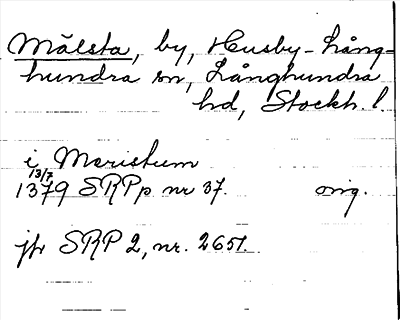 Målsta, by, Husby-Lång-
hundra sn, Långhundra
hd, Stockh. l.
i Meristum
13/7
1379 SRPp nr 37. orig.
jfr SRP 2, nr. 2651.